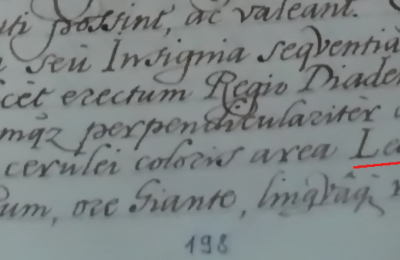 uti possint, ac valeant.
seu Insignia seqventia
cet erectum Regio Diade
mqz perpendiculariter
cerulei coloris area Le
um, ore hiante, lingvâqz
198